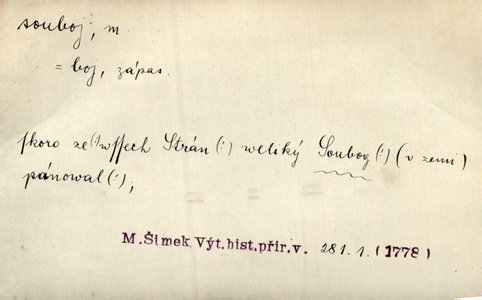 souboj, m.
= boj, zápas.
ſkoro ze(!)wſſech Strán(!) weliký Soubog(!) (v zemi)
pánowal(!),
M. Šimek, Výt. hist. přír. v. 281.1. (1778)